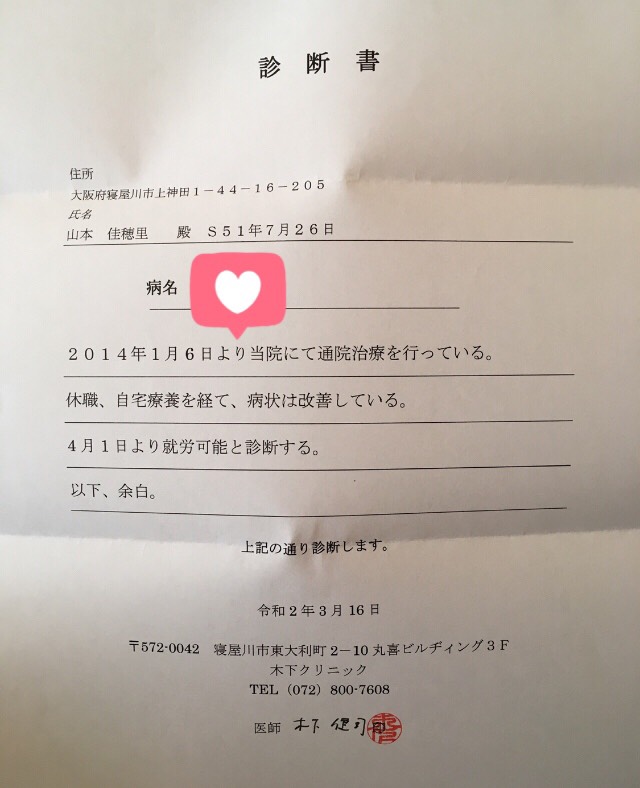 診断書
住所
大阪府寝屋川市上神田1-44-16-205
氏名
山本 佳穂里 殿 S51年7月26日
病名
2014年1月6日より当院にて通院治療を行っている。
休職、自宅療養を経て、病状は改善している。
4月1日より就労可能と診断する。
以下、余白。
上記の通り診断します。
令和2年3月16日
〒572-0042 寝屋川市東大利町2-10丸喜ビルヂィング3F
木下クリニック
TEL(072)800-7608
医師 木下 印